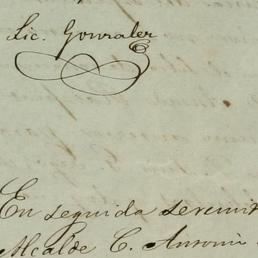 Lic. Gonzalez
En seguida se remit
Alcalde C. Antoni